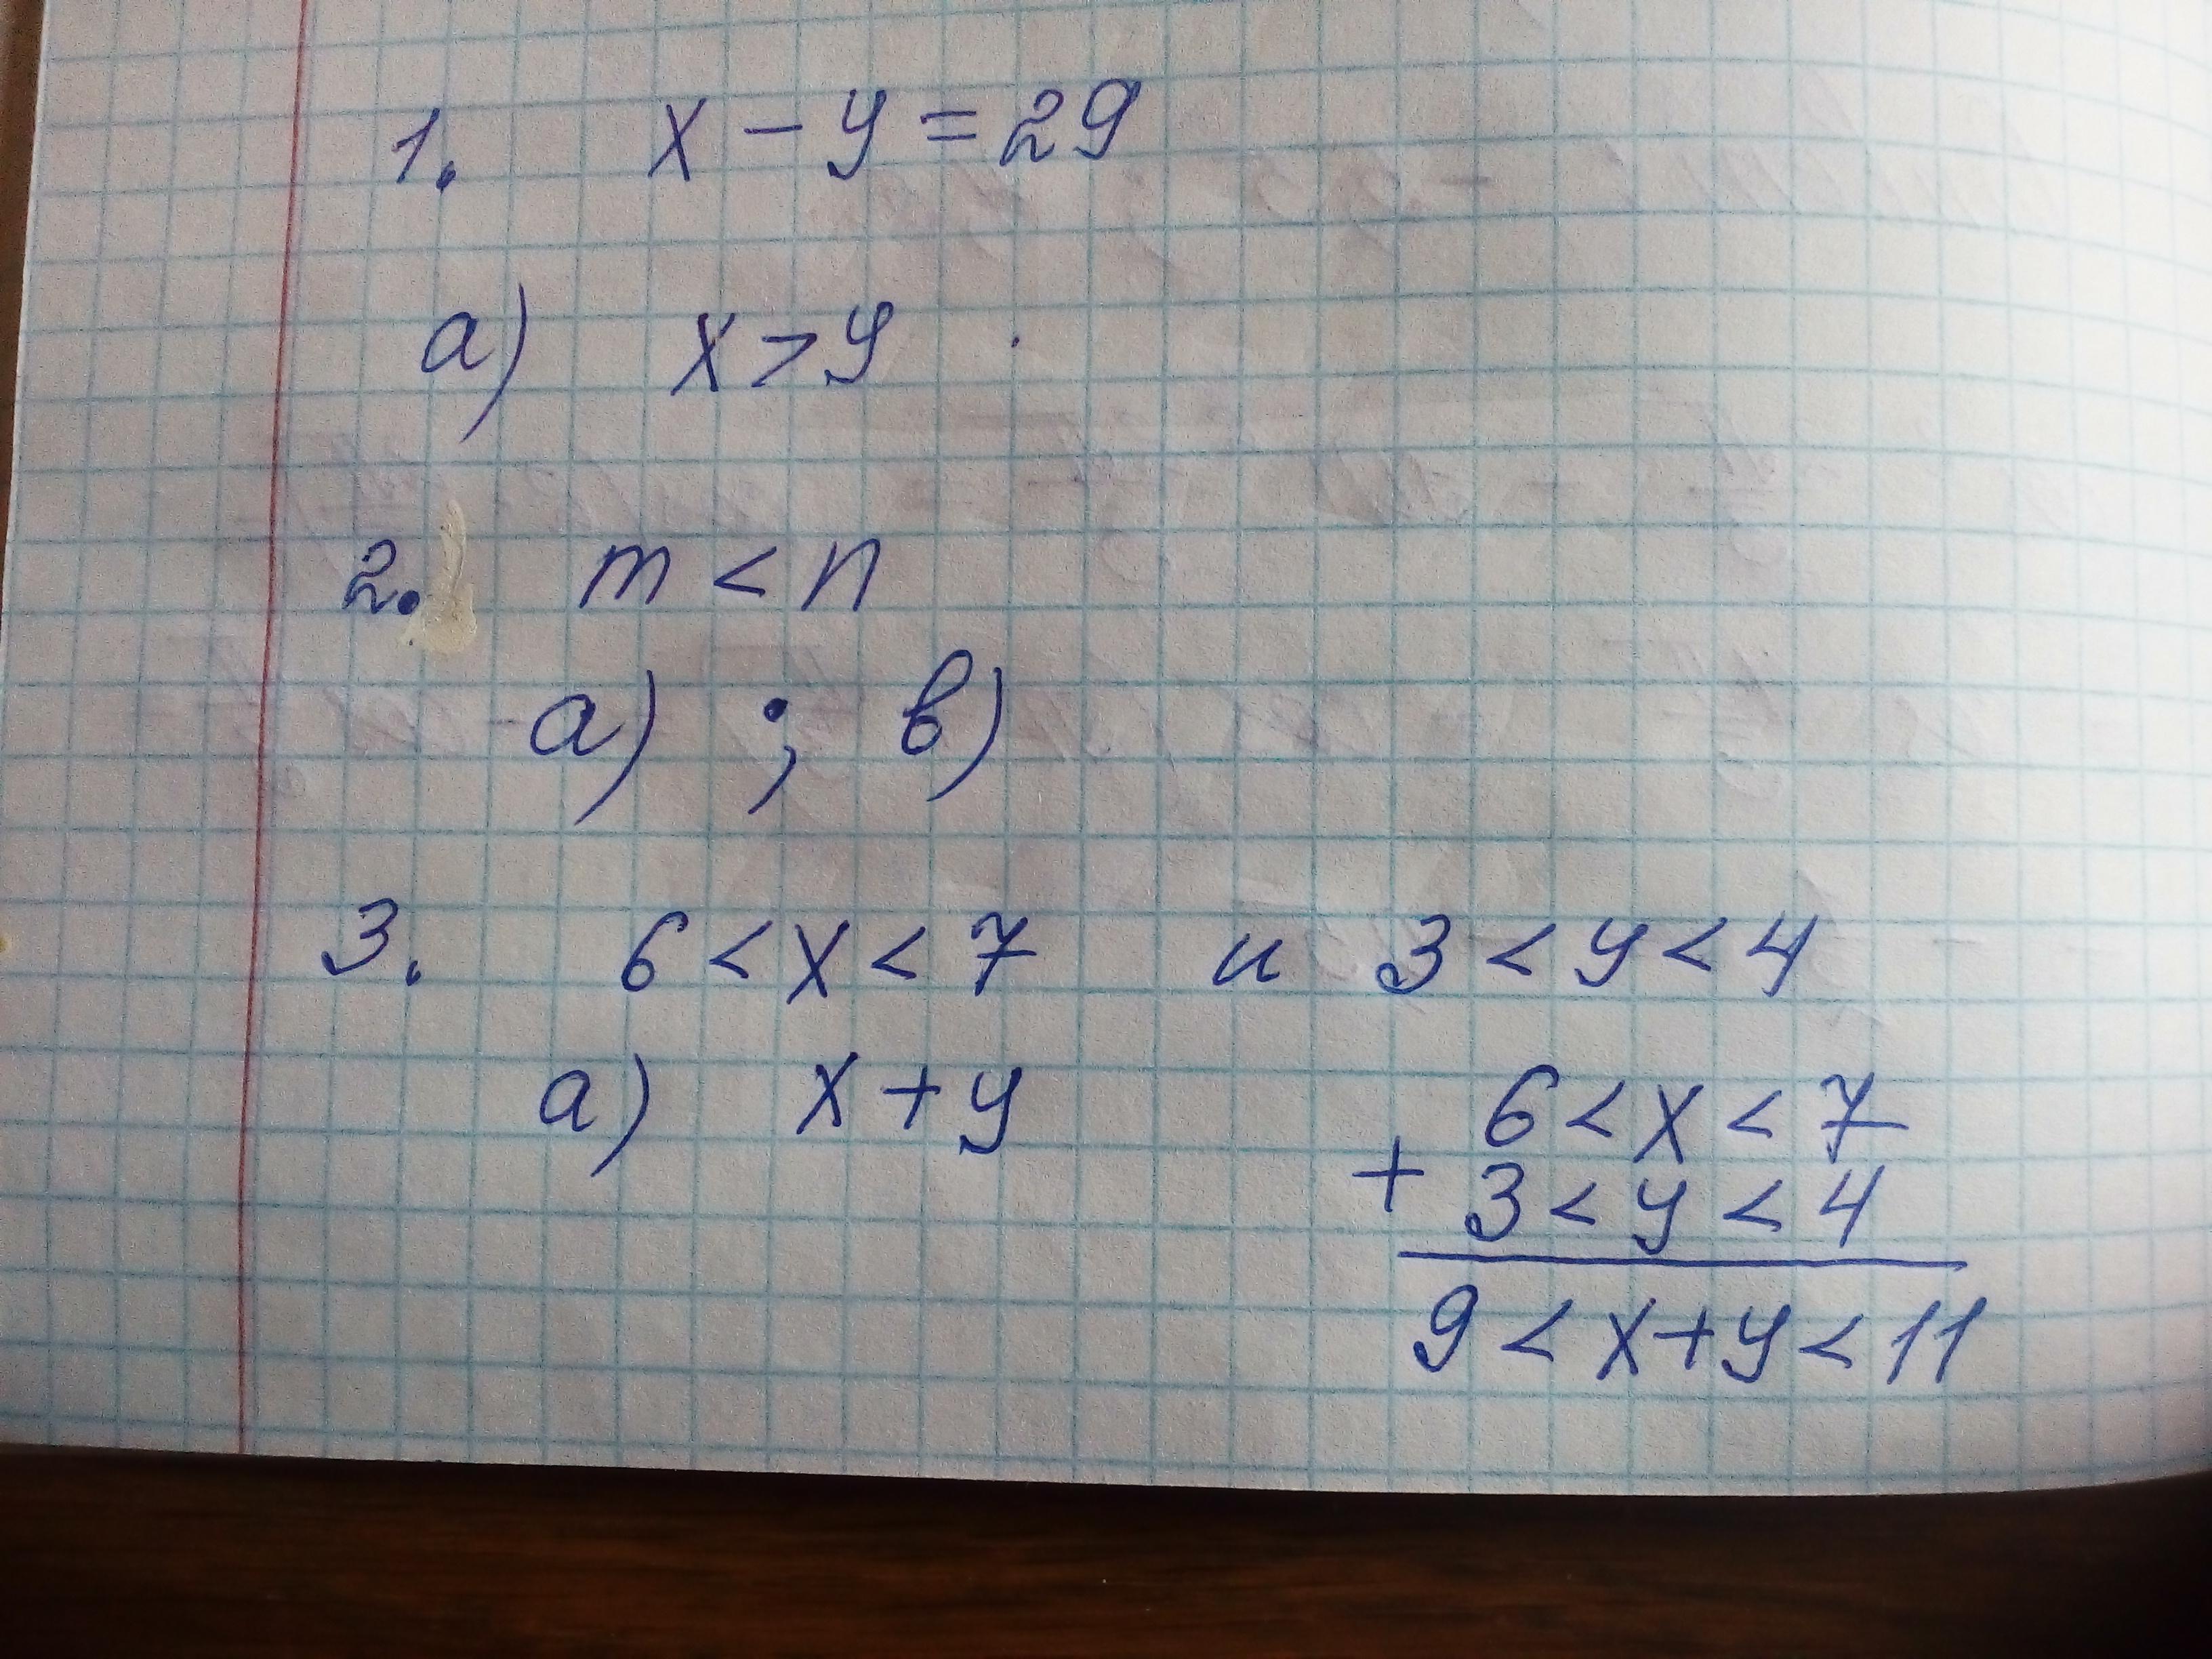 1. x - y = 29
а) x > y
2. m < n
а) ; в)
3. 6 < x < 7 и 3 < y < 4
а) x + y
6 < x < 7
+ 3 < y < 4
9 < x + y < 11